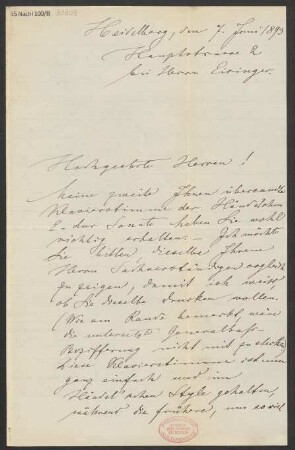 55 Nachl 100/B
Heidelberg, den 7. Juni 1893
Hauptstrasse 2
bei Herrn Eisinger.
Hochgeehrte Herren!
Meine zweite Ihnen übersandte
Klavierstimme der Händelschen
E-dur Sonate haben Sie wohl
richtig erhalten. – Ich möchte
Sie bitten dieselbe Ihrem
Herrn Sachverständigen sogleich
zu zeigen, damit ich weiss
ob Sie dieselbe drucken wollen.
(Wie am Rande bemerkt, wäre
die untersetzte Generalbass-
Bezifferung nicht mit zu stechen.
Diese Klavierstimme ist nun
ganz einfach und im
Händel'schen Style gehalten,
während die frühere, um so viel